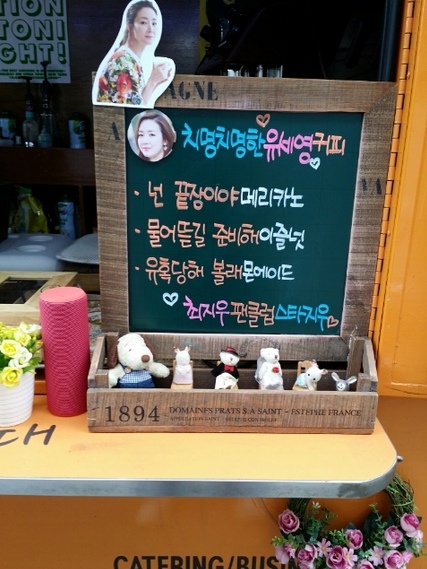 TION
TONI
GHT!
AGNE
치명치명한유세영커피
· 넌 끝장이야메리카노
· 물어뜯길 준비해이즐넛
· 유혹당해 볼래몬에이드
최지우팬클럽스타지우
1894 DOMAINES PRATS S.A SAINT - ESTEPHE FRANCE
CH
CATERING/BUSIN